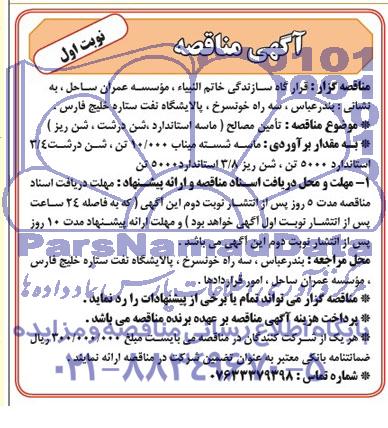 نوبت اول
آگهی مناقصه
مناقصه گزار: قرارگاه سازندگی خاتم النبیاء ، مؤسسه عمران ساحل ، به
نشانی : بندرعباس ، سه راه خونسرخ ، پالایشگاه نفت ستاره خلیج فارس .
* موضوع مناقصه : تأمین مصالح ( ماسه استاندارد ،شن درشت ، شن ریز )
* به مقدار برآوردی : ماسه شسته میناب ۱۰/۰۰۰ تن ، شن درشت۳/٤
استاندارد ۵۰۰۰ تن ، شن ریز ۳/۸ استاندارد۵۰۰۰ تن
۱- مهلت و محل دریافت اسناد مناقصه و ارائه پیشنهاد : مهلت دریافت اسناد
مناقصه مدت ۵ روز پس از انتشار نوبت دوم این آگهی ( که به فاصله ۲٤ ساعت
پس از انتشار نوبت اول آگهی خواهد بود ) و مهلت ارائه پیشنهاد مدت ۱۰ روز
پس از انتشار نوبت دوم این آگهی می باشد .
محل مراجعه : بندرعباس ، سه راه خونسرخ ، پالایشگاه نفت ستاره خلیج فارس
، مؤسسه عمران ساحل ، امور قراردادها .
* مناقصه گزار می تواند تمام یا برخی از پیشنهادات را رد نماید .
* پرداخت هزینه آگهی مناقصه بر عهده برنده مناقصه می باشد .
* هر یک از شرکت کنندگان در مناقصه می بایست مبلغ ۲۰۰/۰۰۰/۰۰۰ ریال
ضمانتنامه بانکی معتبر به عنوان تضمین شرکت در مناقصه ارائه نمایند .
* شماره تماس : ۰۷۶۳۳۳۷۹۳۹۸
ParsNamadData
پایگاه اطلاع رسانی مناقصه و مزایده
۰۲۱-۸۸۳۴۹۶۷۰-۵